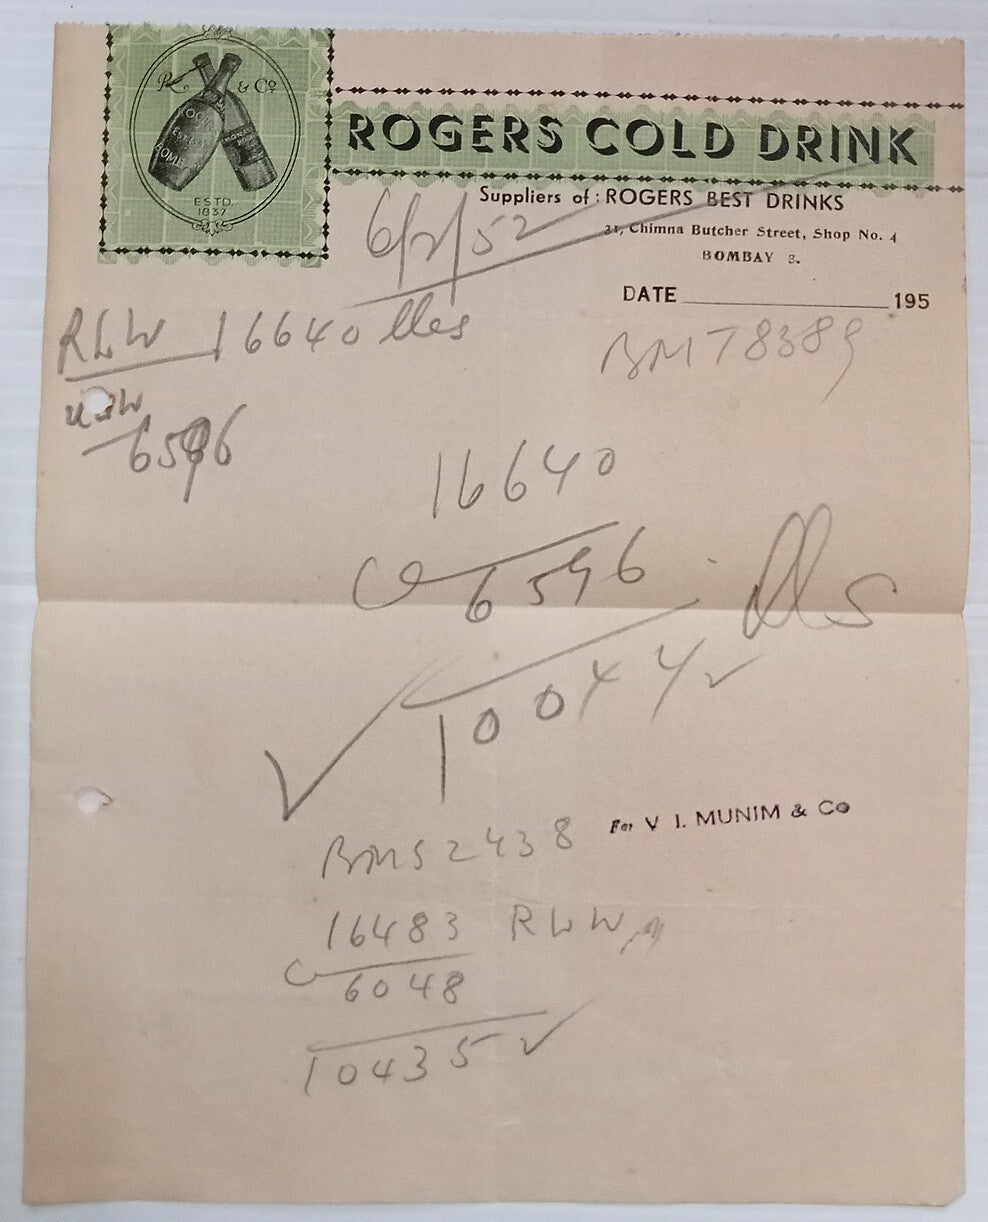 R. & Co
ESTD.
1837
ROGERS COLD DRINK
Suppliers of : ROGERS BEST DRINKS
31, Chimna Butcher Street, Shop No. 4
BOMBAY 8.
6/2/52
DATE 195
RLW 16640 lles
BM78389
ULW
6596
16640
6596 lles
10044
For V I. MUNIM & Co
BMS2438
16483 RLW
6048
10435